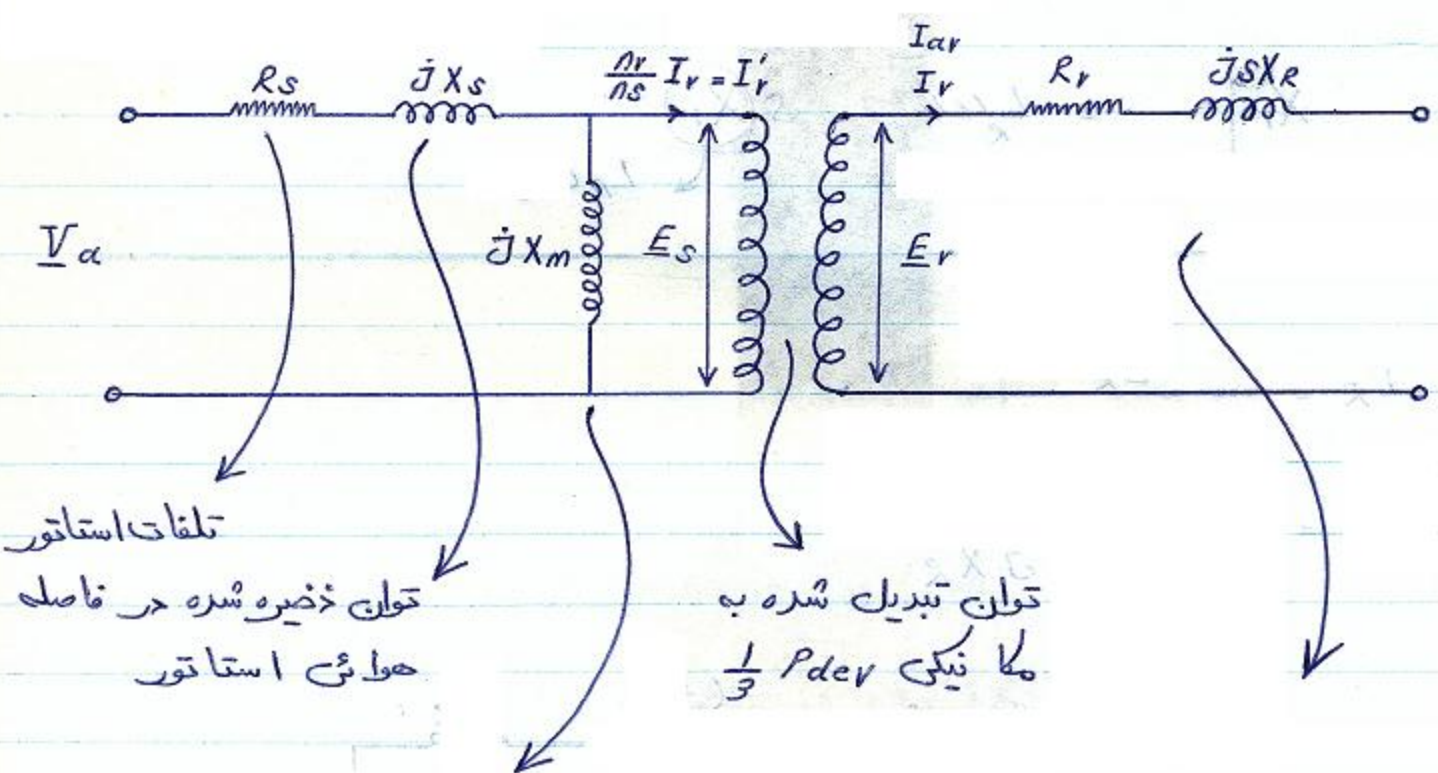 Rs
jXs
nr/ns Ir = I'r
Iar
Ir
Rr
jsXR
Va
jXm
Es
Er
تلفات استاتور
توان ذخیره شده در فاصله
هوائی استاتور
توان تبدیل شده به
مکانیکی 1/3 Pdev